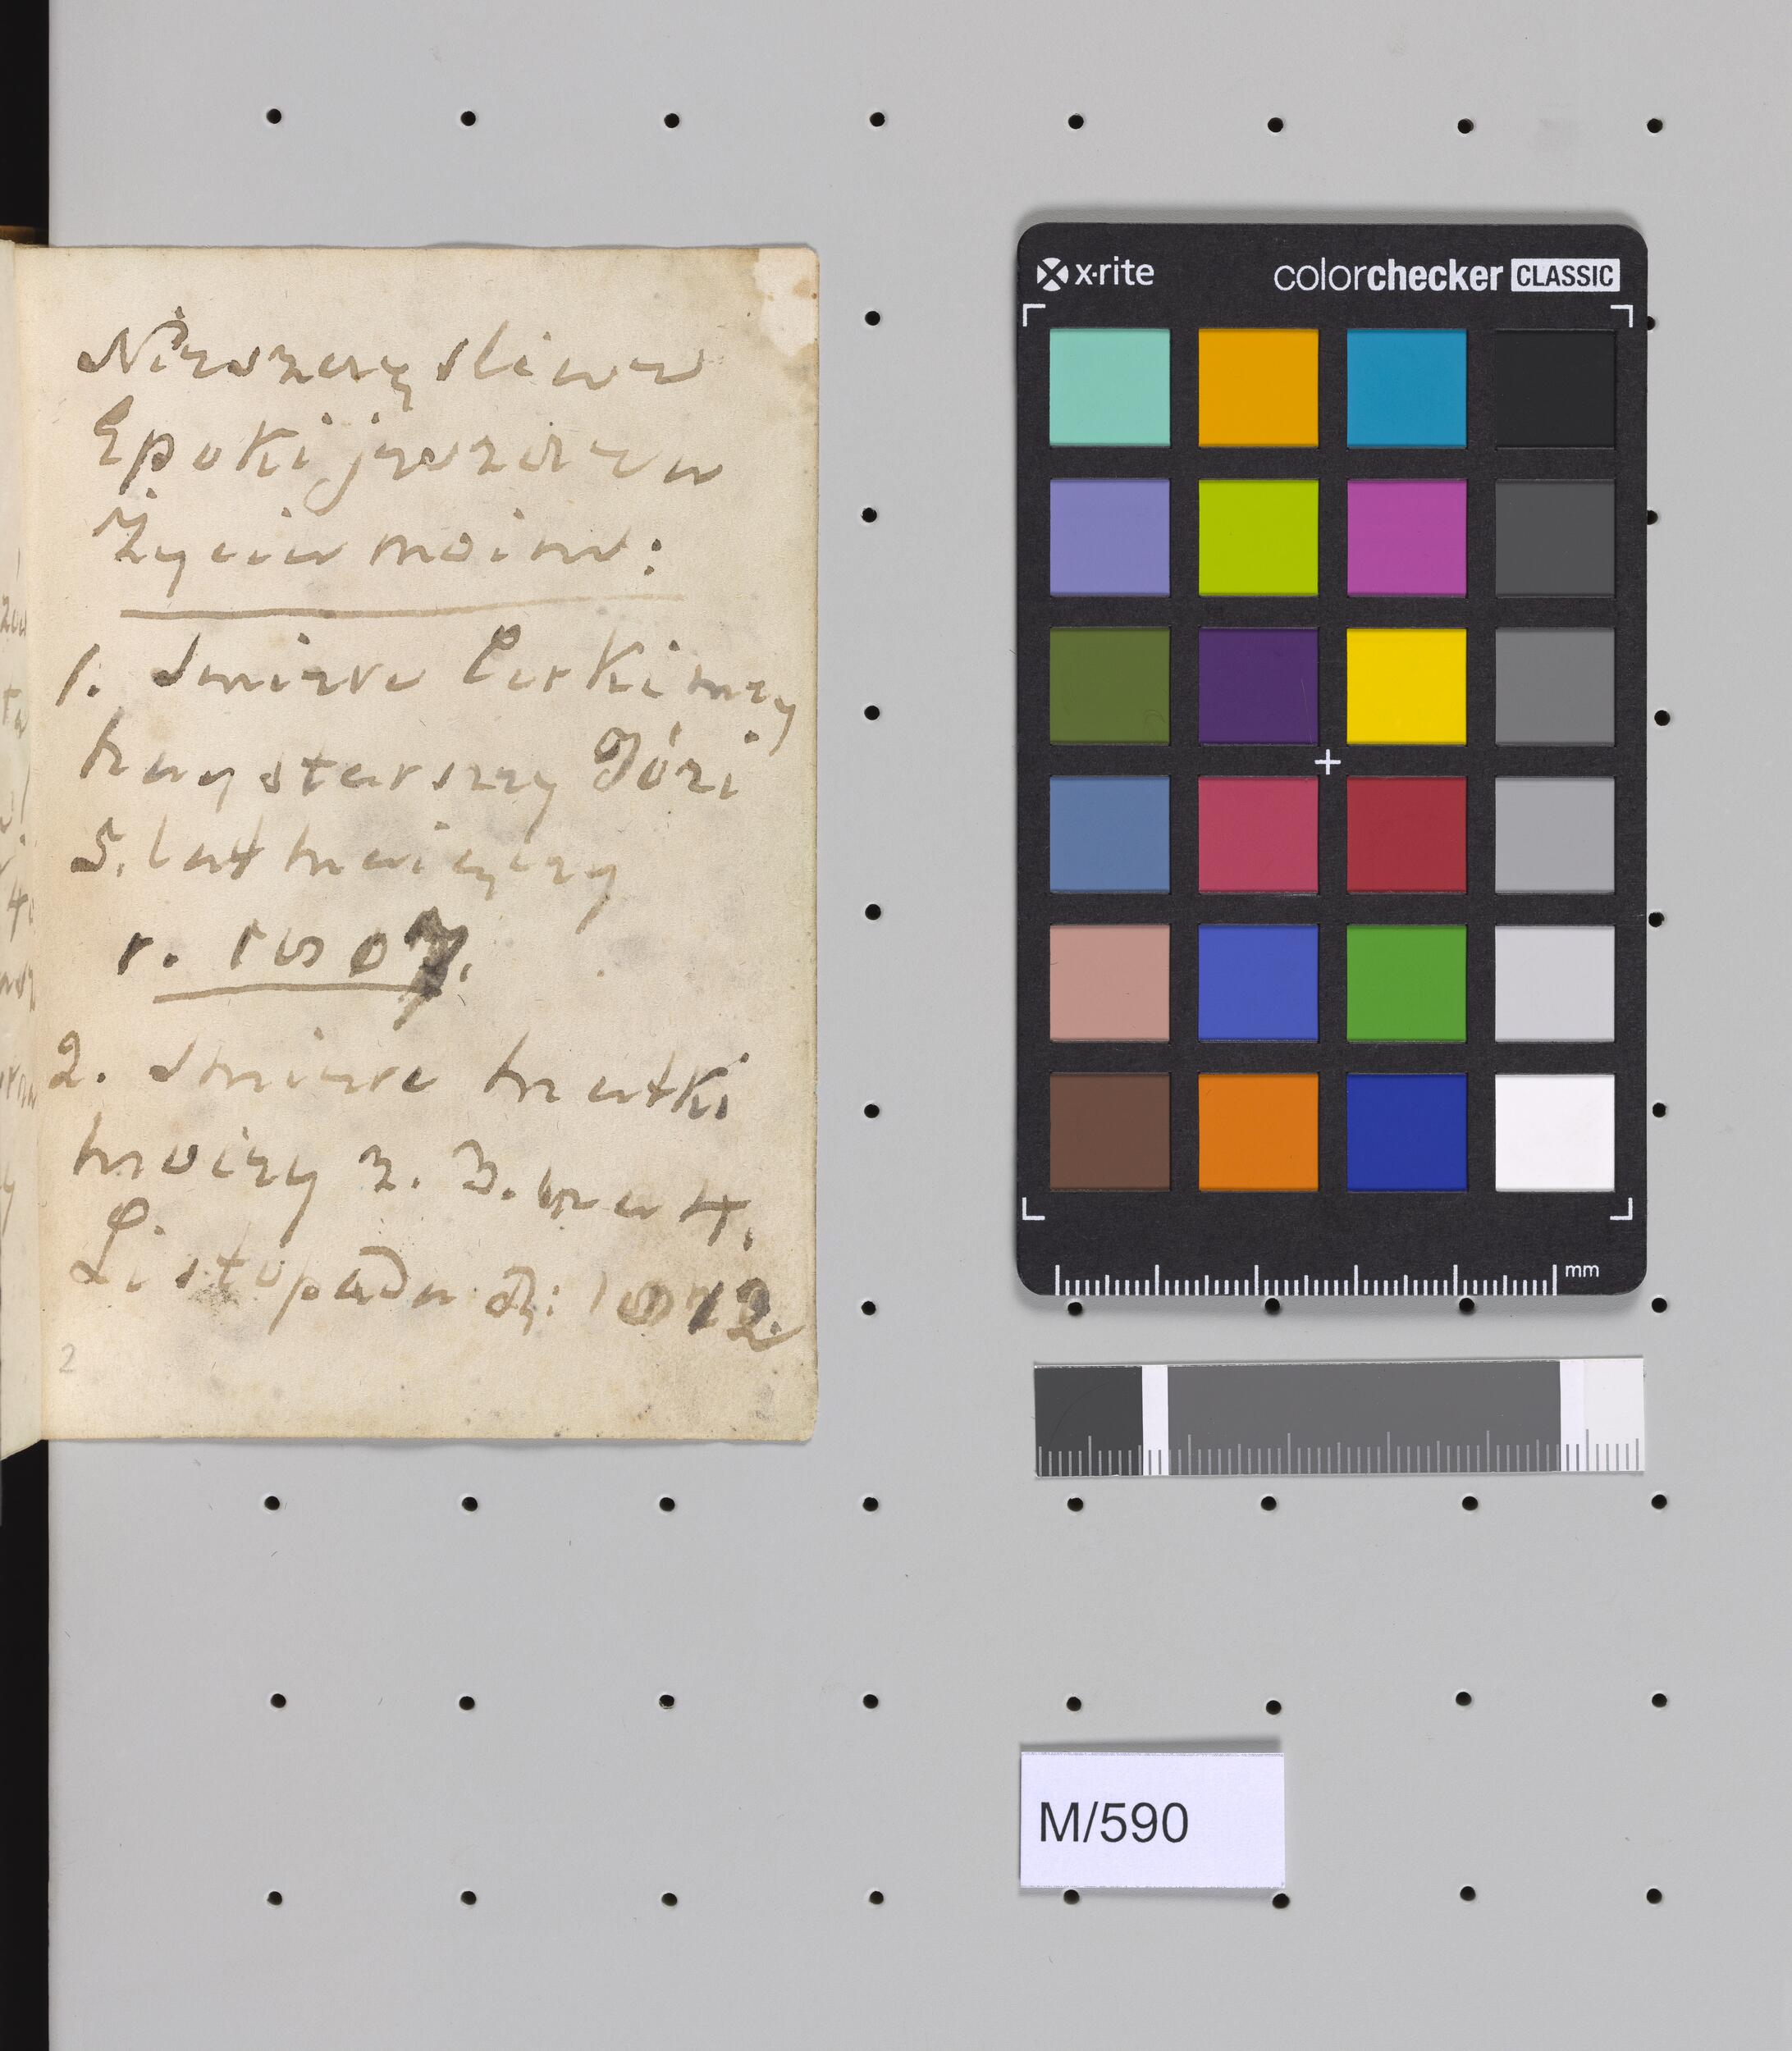 Nieszczęsliwe
Epoki jeszcze w
Życiu moim:
1. Smierc Corki mey
naystarszey Józi
5. lat maiącey
r. 1807.
2. Smierc matki
moiey z. 3. na 4.
Listopada R: 1812.
2
x·rite colorchecker CLASSIC
mm
M/590